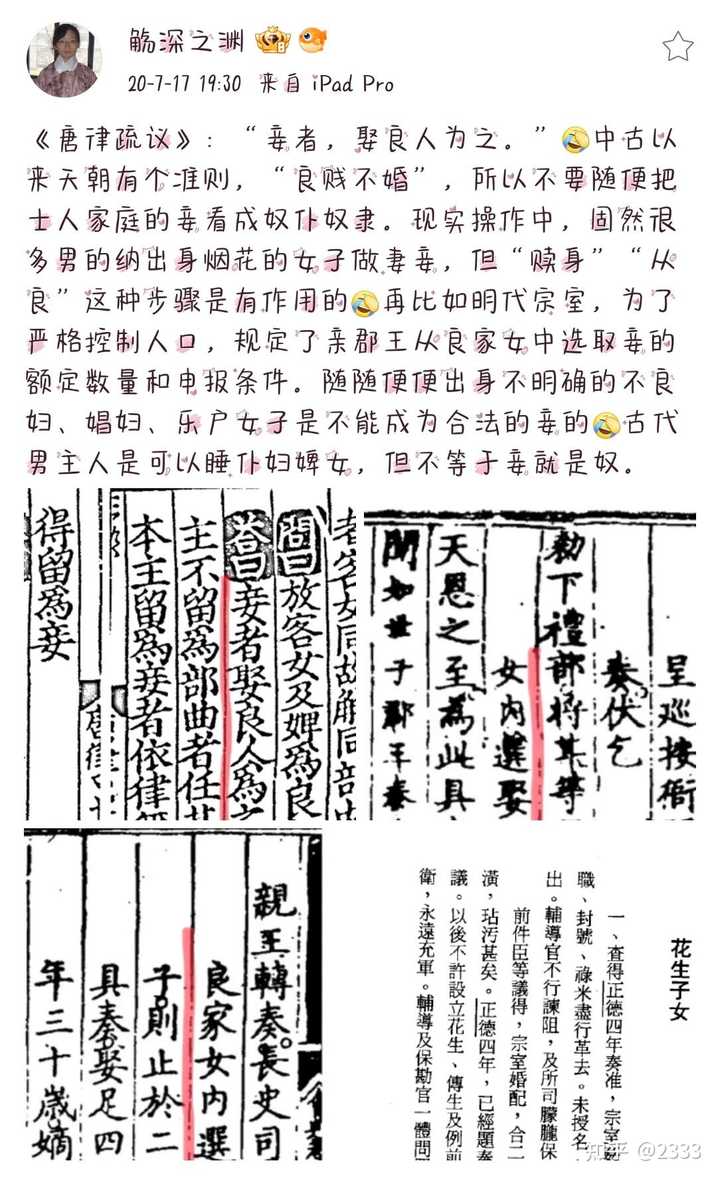 觞深之渊
20-7-17 19:30 来自 iPad Pro
《唐律疏议》：“妾者，娶良人为之。”🤣中古以
来天朝有个准则，“良贱不婚”，所以不要随便把
士人家庭的妾看成奴仆奴隶。现实操作中，固然很
多男的纳出身烟花的女子做妻妾，但“赎身”“从
良”这种步骤是有作用的🤣再比如明代宗室，为了
严格控制人口，规定了亲郡王从良家女中选取妾的
额定数量和申报条件。随随便便出身不明确的不良
妇、娼妇、乐户女子是不能成为合法的妾的🤣古代
男主人是可以睡仆妇婢女，但不等于妾就是奴。
問曰放客女及婢爲良
荅曰妾者娶良人爲之
主不留爲部曲者任其
本主留爲妾者依律
得留爲妾
呈巡按衙
奏伏乞
勑下禮部將其等
女内選娶
天恩之至爲此具
聞如世子郡王
親王轉奏。長史司
良家女内選
子。則止於二
具奏娶足四
年三十歲嫡
花生子女
一、查得正德四年奏准，宗室
職、封號、祿米盡行革去。未授名
出。輔導官不行諫阻，及所司朦朧保
前件臣等議得，宗室婚配，合二
潢，玷污甚矣。正德四年，已經題奏
議。以後不許設立花生、傳生及例前
衛，永遠充軍。輔導及保勘官一體問
知乎 @2333